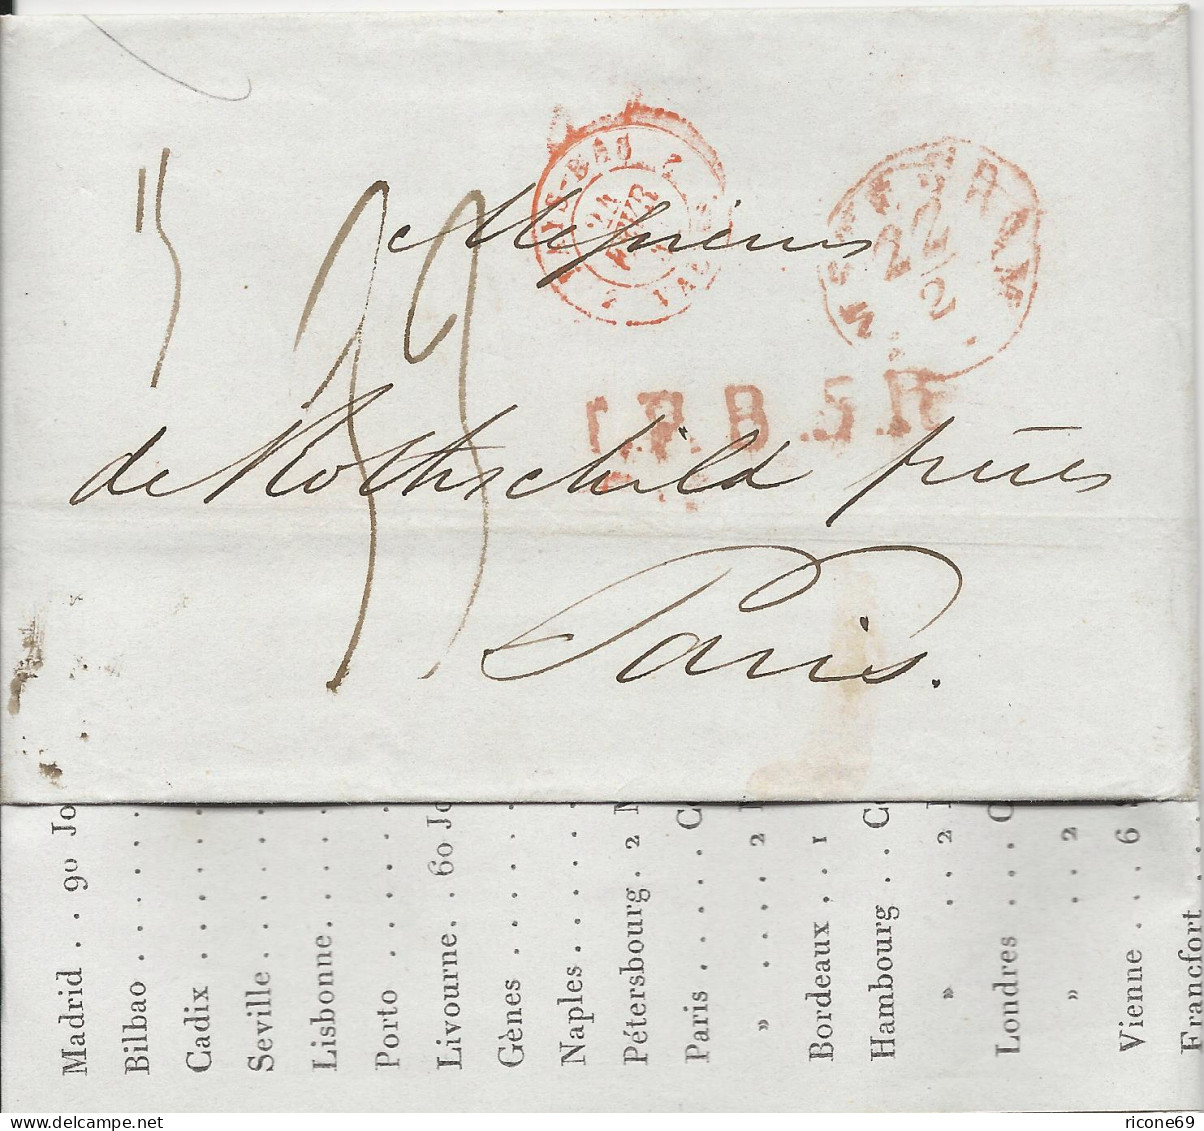 Messieurs
de Rothschild frères
Paris.
AMSTERDAM
22/2
PAYS-BAS 2
24
L.P.B.5.R
Madrid . . 90 Jo
Bilbao . . . . .
Cadix . . . . .
Seville . . . . .
Lisbonne . . . .
Porto . . . . .
Livourne . . 60 Jo
Gènes . . . . .
Naples . . . . .
Pétersbourg . 2
Paris . . . . . C
» . . . . 2
Bordeaux . . 1
Hambourg . . C
» . . 2
Londres . . .
» . . 2
Vienne . . . 6
Francfort . .
ricone69